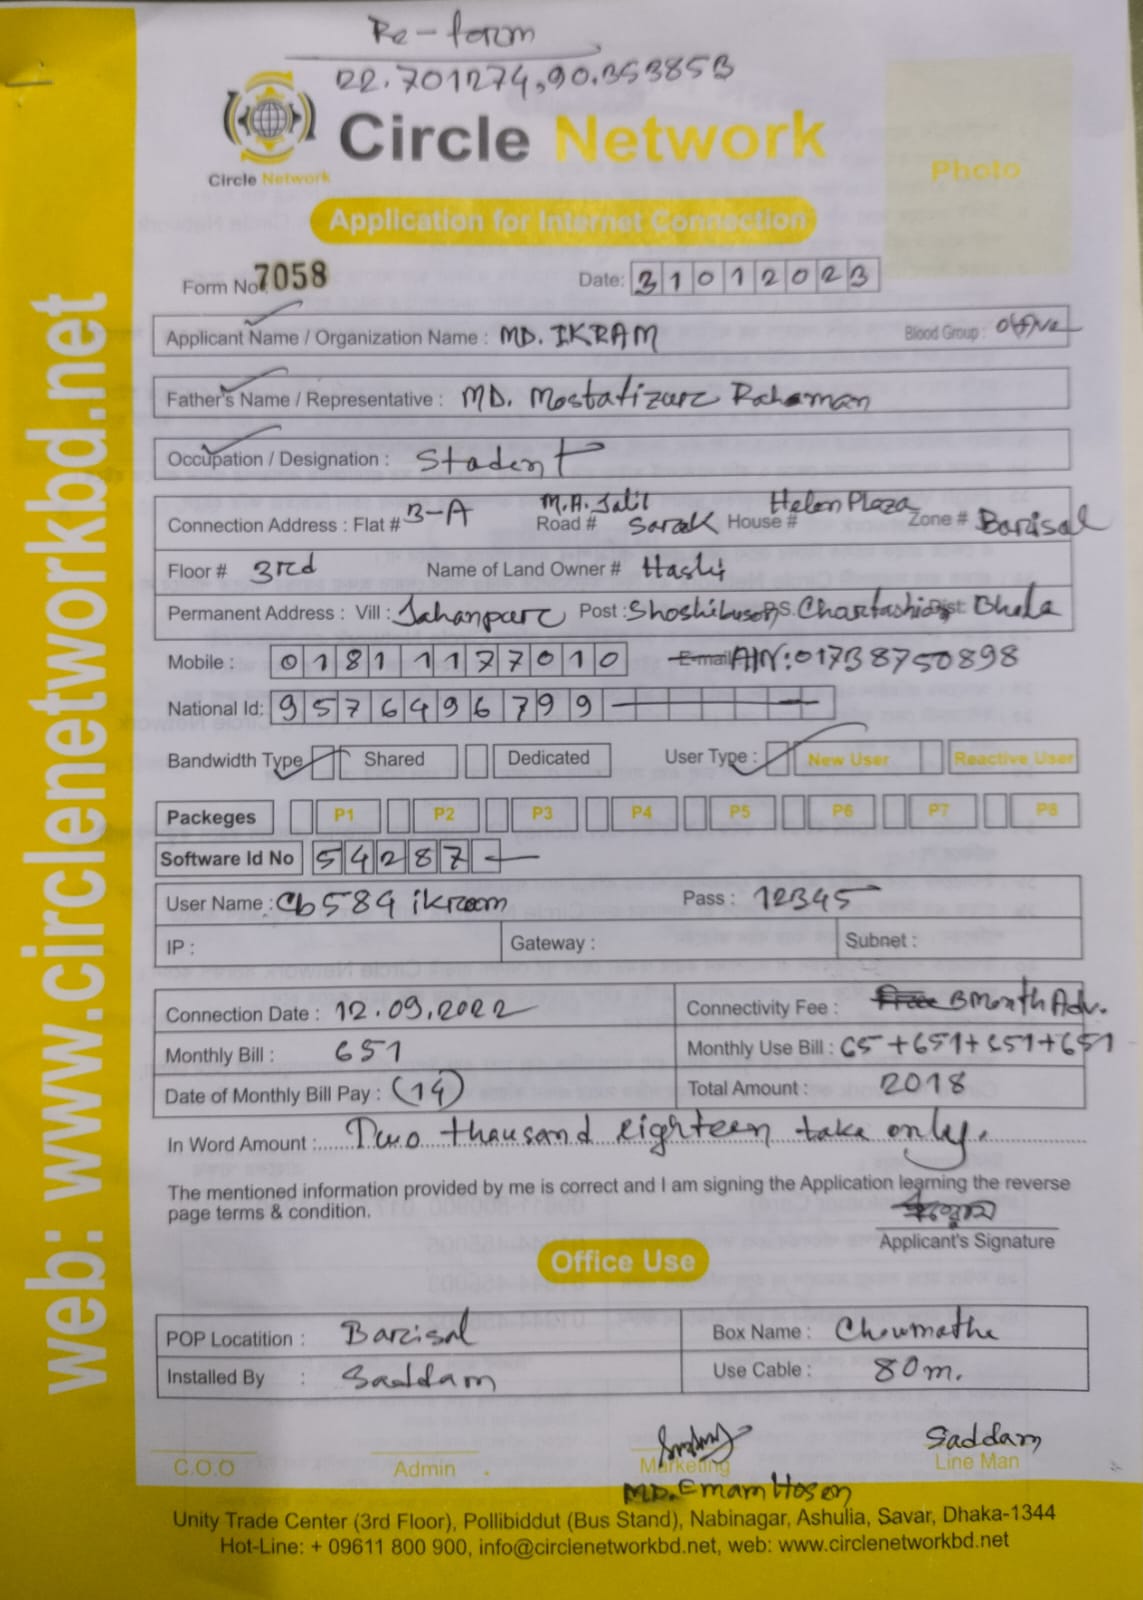 Re-form
22.701274,90.353853
Circle Network
Circle Network
Photo
Application for Internet Connection
Form No. 7058
Date: 31012023
Applicant Name / Organization Name : MD. IKRAM Blood Group :
Father's Name / Representative : MD. Mostafizure Rahaman
Occupation / Designation : Stadent
Connection Address : Flat # 3-A Road # M.A. Jalil Sarak House # Helen Plaza Zone # Barisal
Floor # 3rd Name of Land Owner # Hashi
Permanent Address : Vill : Jahanpure Post : P.S. Dist: Bhola
Mobile : 01811177010 E-mail A/N: 01738750898
National Id: 9576496799
Bandwidth Type Shared Dedicated User Type : New User Reactive User
Packeges P1 P2 P3 P4 P5 P6 P7 P8
Software Id No 54287
User Name : Cb589 ikram Pass : 12345
IP : Gateway : Subnet :
Connection Date : 12.09.2022 Connectivity Fee : 3month Adv.
Monthly Bill : 651 Monthly Use Bill : 65+651+651+651
Date of Monthly Bill Pay : (14) Total Amount : 2018
In Word Amount : Two thausand eighteen taka only.
The mentioned information provided by me is correct and I am signing the Application learning the reverse
page terms & condition.
Applicant's Signature
Office Use
POP Locatition : Barisal Box Name : Chowmatha
Installed By : Saddam Use Cable : 80m.
Saddam
C.O.O Admin Marketing Line Man
MD. Emam Hosen
Unity Trade Center (3rd Floor), Pollibiddut (Bus Stand), Nabinagar, Ashulia, Savar, Dhaka-1344
Hot-Line: + 09611 800 900, info@circlenetworkbd.net, web: www.circlenetworkbd.net
web: www.circlenetworkbd.net